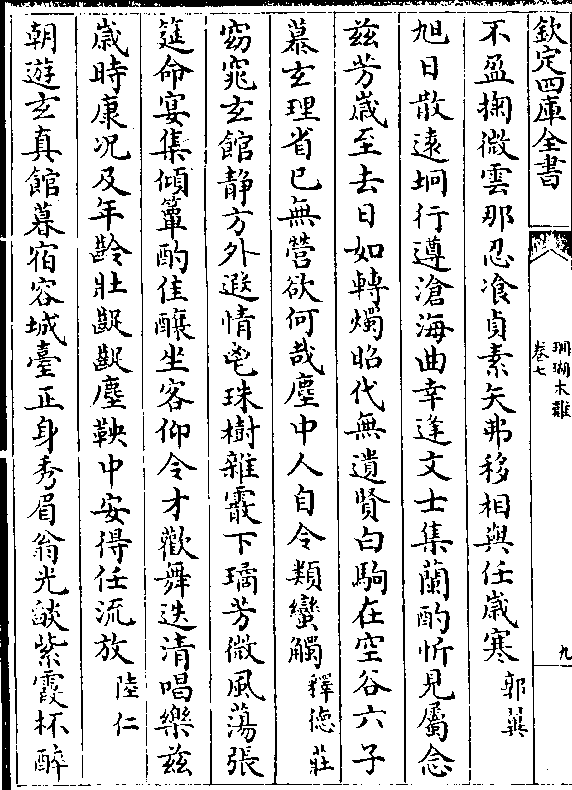 欽定四庫全書
珊瑚木難
卷七
九
不盈掬微雲那忍飡貞素矢弗移相與任歳寒 郭
旭日散遠坰行遵滄海曲幸逢文士集蘭酌忻見屬念
兹芳歳至去日如轉燭昭代無遺賢白駒在空谷六子
慕玄理省已無營欲何哉塵中人自令類蠻觸 釋徳莊
窈窕玄館静方外遐情電珠樹雜霰下璚芳微風蕩張
筵命宴集傾簞酌佳釀坐客仰令才歡舞迭清唱樂兹
歳時康况及年齡壯齪齪塵鞅中安得任流放 陸仁
朝遊玄真館暮宿容城臺正身秀眉翁光燄紫霞杯醉